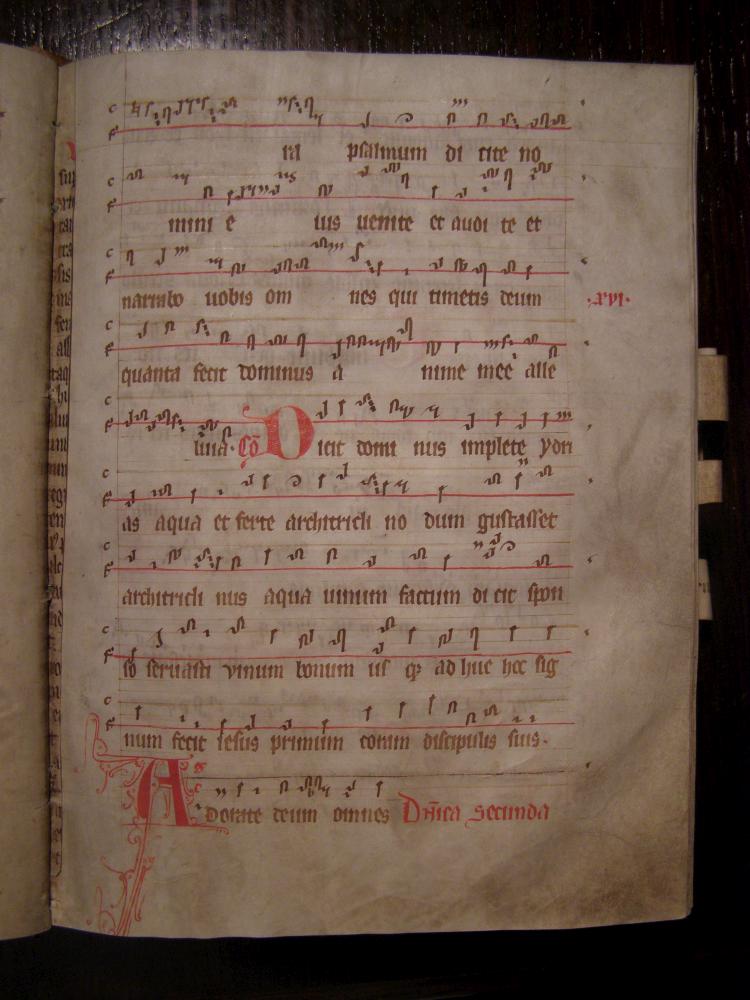 ra psalmum di cite no
mini e ius uenite et audi te et
narrabo uobis om nes qui timetis deum
.xvi.
quanta fecit dominus a nime mee alle
luia. Cō Dicit domi nus implete ydri
as aqua et ferte architricli no dum gustasset
architricli nus aqua uinum factum di cit spon
so seruasti vinum bonum us qꝫ ad huc hoc sig
num fecit iesus primum coram discipulis suis.
Adorate deum omnes Dn̄ica secunda